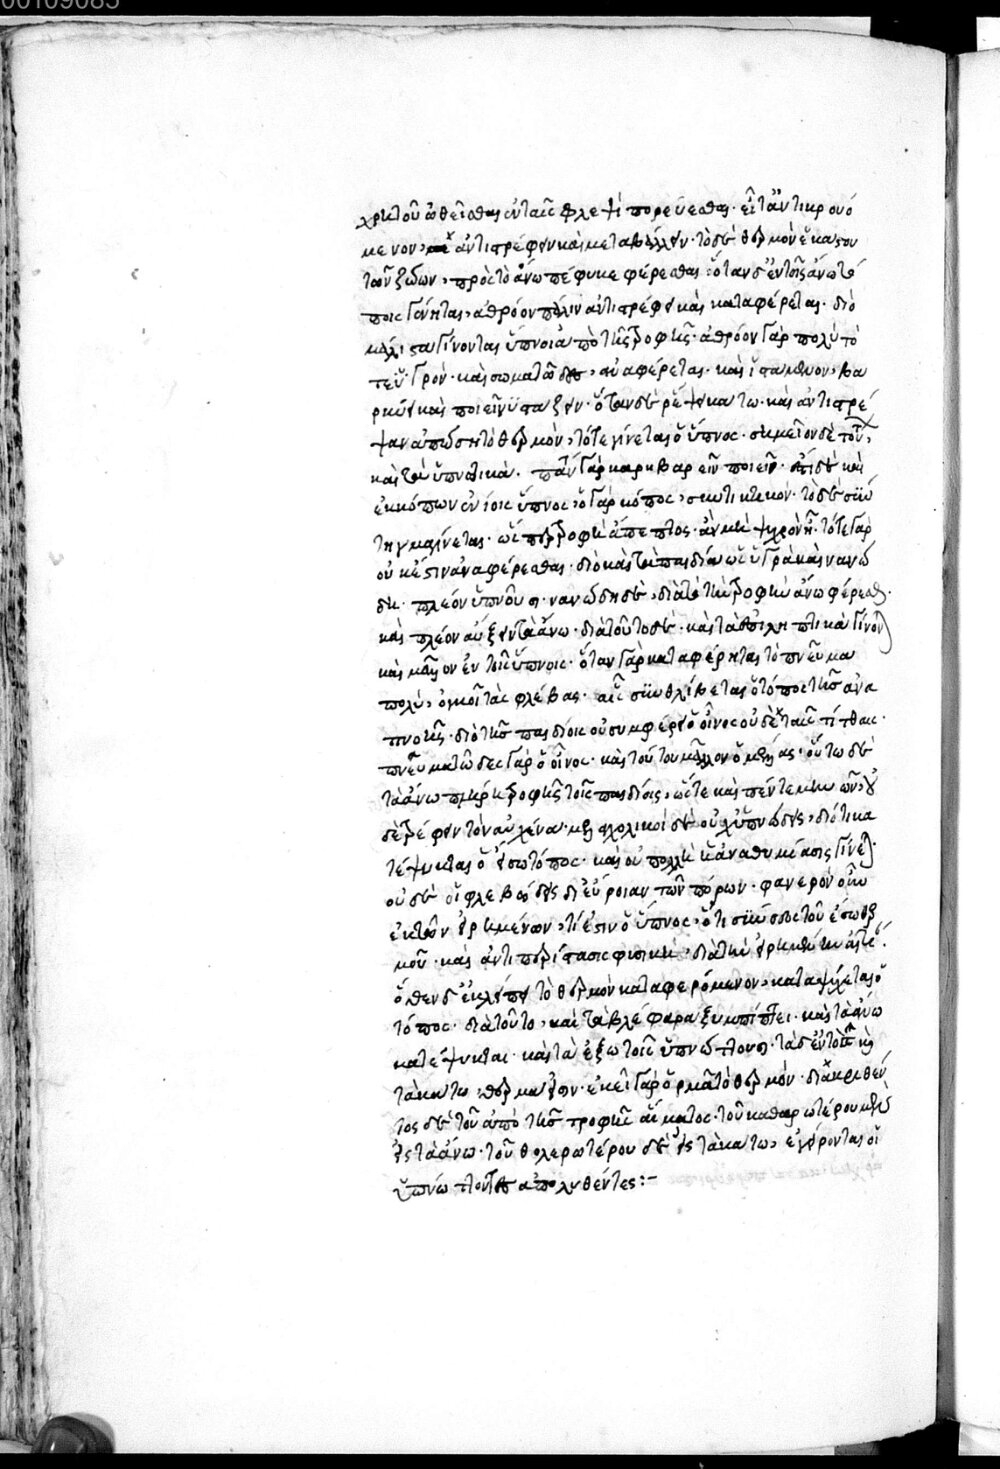 00109085
χρι τοῦ ὠθεῖσθαι ἐν ταῖς φλεψὶ πορεύεσθαι. εἶτ' ἀντικρουό
μενον, ἀντιστρέφειν καὶ μεταβάλλειν. τὸ δὲ θερμὸν ἑκάστου
τῶν ζώων, πρὸς τὸ ἄνω πέφυκε φέρεσθαι. ὅταν δ' ἐν τοῖς ἄνω τό
ποις γένηται, ἀθρόον πάλιν ἀντιστρέφει καὶ καταφέρεται. διὸ
μάλιστα γίνονται ὕπνοι ἀπὸ τῆς τροφῆς. ἀθρόον γὰρ πολὺ τό
τε ὑγρὸν. καὶ σωματῶδες, ἀναφέρεται. καὶ ἱστάμενον, βα
ρύνει καὶ ποιεῖ νυστάζειν. ὅταν δὲ ῥέψει κάτω. καὶ ἀντιστρέ
ψαν ἀπώσῃ τὸ θερμὸν, τότε γίνεται ὁ ὕπνος. σημεῖον δὲ τούτων,
καὶ τὰ ὑπνωτικὰ. πάντα γὰρ καρηβαρεῖν ποιεῖ. ἔτι δὲ καὶ
ἐκ κόπων ἐνίοις ὕπνος, ὁ γὰρ κόπος, συντηκτικὸν. τὸ δὲ σύν
τηγμα γίνεται. ὥσπερ τροφὴ ἄπεπτος. ἂν μὴ ψυχρὸν ᾖ. τότε γὰρ
οὐκ ἔστιν ἀναφέρεσθαι. διὸ καὶ τὰ παιδία ὡς ὑγρὰ καὶ νανώ
δη. πλέον ὑπνοῦσι. νανώδη δὲ, διὰ τὸ τὴν τροφὴν ἄνω φέρεσθαι.
καὶ πλέον αὔξειν τὰ ἄνω. διὰ τοῦτο δὲ. καὶ τὰ ἐπιληπτικὰ γίνονται
καὶ μᾶλλον ἐν τοῖς ὕπνοις. ὅταν γὰρ καταφέρηται τὸ πνεῦμα
πολὺ, ὀγκοῖ τὰς φλέβας. αἷς συνθλίβεται ὁ τόπος τῆς ἀνα
πνοῆς. διὸ τοῖς παιδίοις οὐ συμφέρει ὁ οἶνος οὐδὲ ταῖς τίτθαις.
πνευματῶδες γὰρ ὁ οἶνος. καὶ τούτου μᾶλλον ὁ μέλας. οὕτω δὲ
τὰ ἄνω πλήρη τροφῆς τοῖς παιδίοις, ὥστε καὶ πέντε μηνῶν, οὐ
δὲ στρέφειν τὸν αὐχένα. μελαγχολικοὶ δὲ οὐχ ὑπνώδεις, διότι κα
τέψυκται ὁ εἴσω τόπος. καὶ οὐ πολλὴ ἡ ἀναθυμίασις γίνεται.
οὐδὲ οἱ φλεβώδεις δι' εὔροιαν τῶν πόρων. φανερὸν οὖν
ἐκ τῶν εἰρημένων, τί ἐστιν ὁ ὕπνος, ὅτι σύνοδος τοῦ ἔσω θερ
μοῦ. καὶ ἀντιπερίστασις φυσικὴ. διὰ τὴν εἰρημένην αἰτίαν.
ὅθεν δ' ἐκλείπει τὸ θερμὸν καταφερόμενον, καταψύχεται ὁ
τόπος. διὰ τοῦτο, καὶ τὰ βλέφαρα ξυμπίπτει. καὶ τὰ ἄνω
κατέψυκται. καὶ τὰ ἔξω τοῖς ὑπνώττουσι. τὰ δ' ἐντὸς καὶ
τὰ κάτω, θερμαίνεται. ἐκεῖ γὰρ ὁρμᾶ τὸ θερμὸν. διακριθέν
τος δὲ τοῦ ἀπὸ τῆς τροφῆς αἵματος. τοῦ καθαρωτέρου μὲν
εἰς τὰ ἄνω. τοῦ θολερωτέρου δὲ εἰς τὰ κάτω, ἐγείρονται οἱ
ὑπνώττοντες ἀπολυθέντες:-